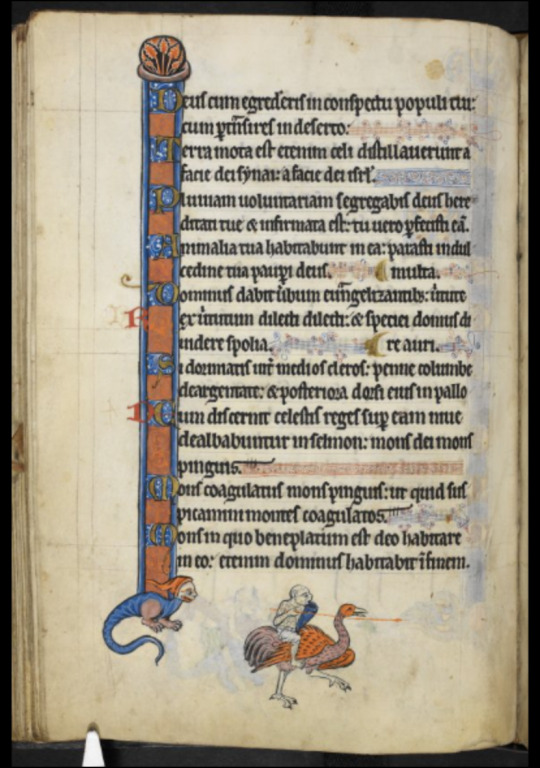 Deus cum egredēris in conspectu populi tui:
cum ptnsires in deserto:
Terra mota est etenim celi distillauerunt a
facie dei synai: a facie dei isrl'.
Pluuiam uoluntariam segregabis deus here
ditati tue & infirmata est: tu uero pfecisti eā.
Animalia tua habitabunt in ea: parasti in dul
cedine tua paupi deus. multa.
Dominus dabit ūbum euangelizantib: ūtute
Rex uirtutum dilecti dilecti: & speciei domus di
uidere spolia. re auri.
Si dormiatis int medios cleros: penne columbe
deargentate: & posteriora dorsi eius in pallo
Dum discernit celestis reges sup eam niue
dealbabuntur in selmon: mons dei mons
pinguis.
Mons coagulatus mons pinguis: ut quid sus
picamini montes coagulatos.
Mons in quo beneplacitum est deo habitare
in eo: etenim dominus habitabit ī finem.